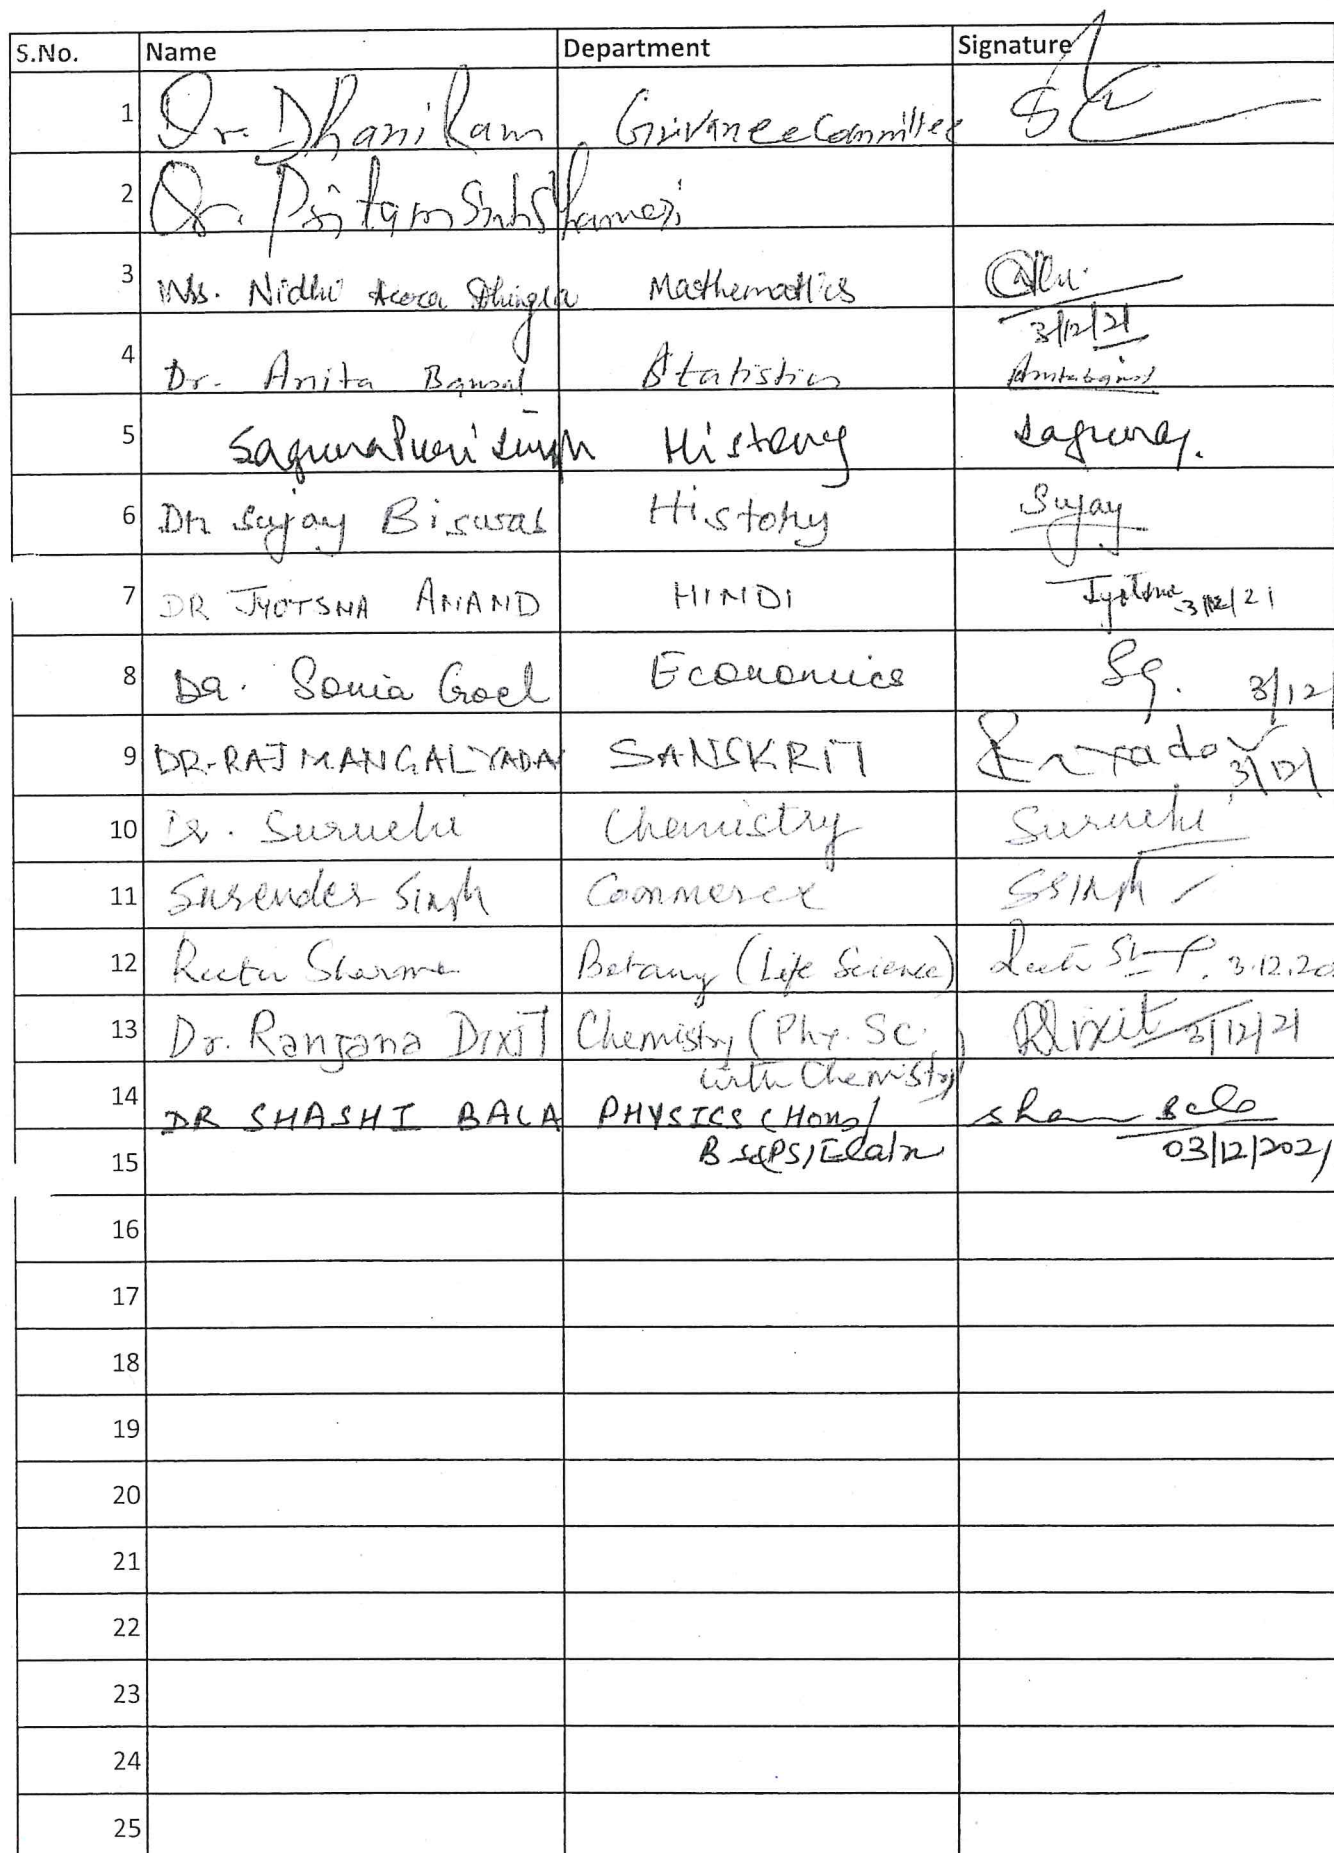 S.No. Name Department Signature
1 Dr. Dhani Ram Grivance Committee
2 Dr. Pritam
3 Ms. Nidhi Arora Dhingra Mathematics
3/12/21
4 Dr. Anita Bansal Statistics Anita bansal
5 Saguna Puri Singh History Saguna
6 Dr Sujay Biswas History Sujay
7 DR JYOTSNA ANAND HINDI Jyotsna 3/12/21
8 Dr. Sonia Goel Economics SG. 3/12/
9 DR. RAJ MANGAL YADAV SANSKRIT Yadav
3/12/
10 Dr. Suruchi Chemistry Suruchi
11 Surender Singh Commerce SSingh
12 Reetu Sharma Botany (Life Science) 3.12.20
13 Dr. Ranjana DIXIT Chemistry (Phy. Sc. RDixit 3/12/21
with Chemistry)
14 DR SHASHI BALA PHYSICS (Hons) Bala
15 B Sc(PS)/Elect 03/12/2021
16
17
18
19
20
21
22
23
24
25